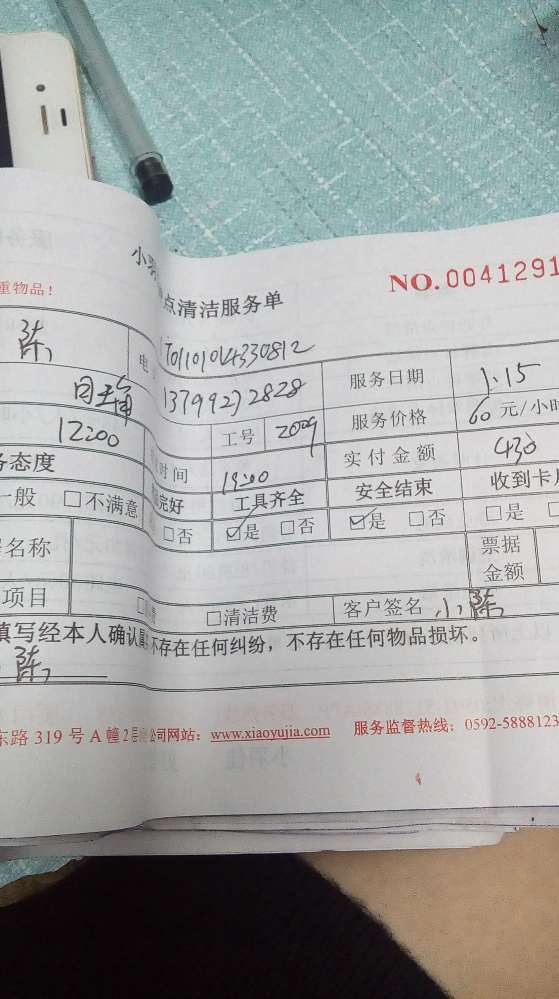 NO.0041291
小羽 点清洁服务单
重物品!
陈 电 T0110101V4330812
13799272828 服务日期 1.15
12:00 工号 2009 服务价格 60元/小时
务态度 时间 19:00 实付金额 430
一般 □不满意 完好 工具齐全 安全结束 收到卡
□否 ☑是 □否 ☑是 □否 □是
名称 票据
金额
项目 □清洁费 客户签名 小陈
填写经本人确认属 不存在任何纠纷,不存在任何物品损坏。
陈
东路319号A幢2层 公司网站:www.xiaoyujia.com 服务监督热线:0592-5888123